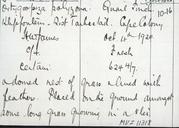 Ortygospiza polyzona. Quail Finch
10-16
Klipfontein - Dist Tarkastad. Cape Colony
Oct 11th 1920
c/4 Fresh
Certain 624 4/7.
a domed nest of grass - lined with
feathers. Placed on the ground amongst
some long grass growing in a vlei
MVZ 11318